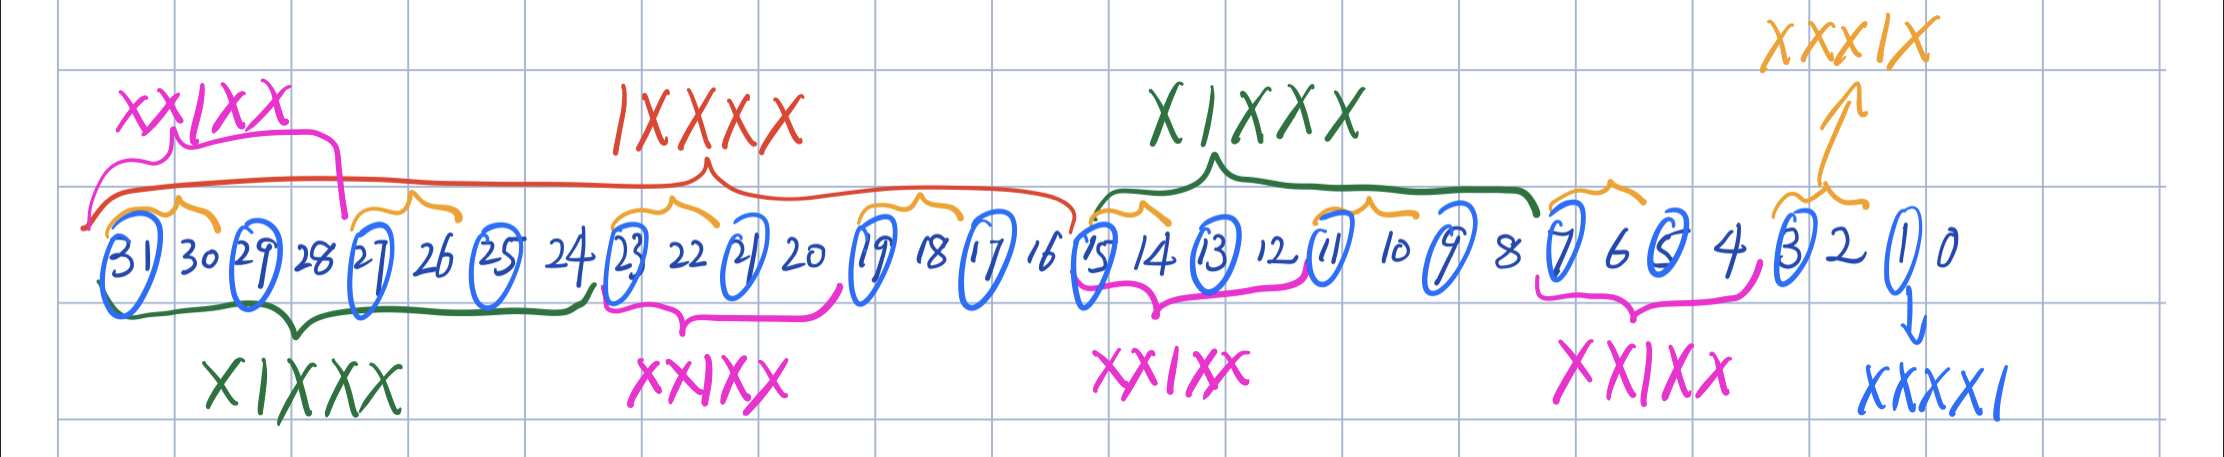 XXX1X
XX1XX 1XXXX X1XXX
31 30 29 28 27 26 25 24 23 22 21 20 19 18 17 16 15 14 13 12 11 10 9 8 7 6 5 4 3 2 1 0
X1XXX XX1XX XX1XX XX1XX XXXX1